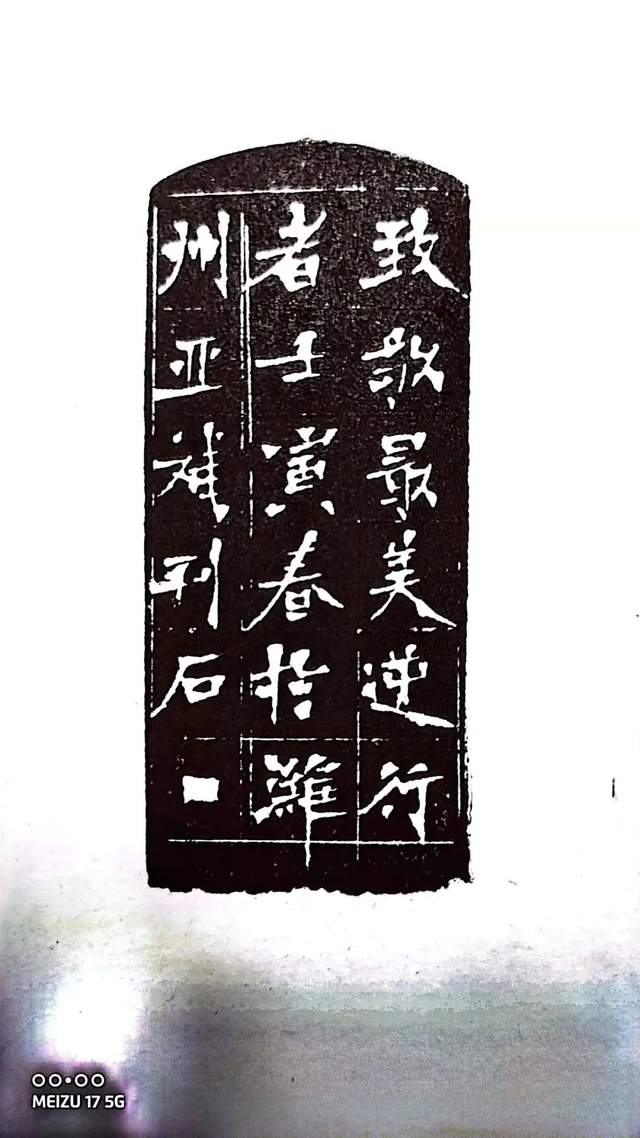 致敬最美逆行
者壬寅春於
州亚斌刊石
MEIZU 17 5G